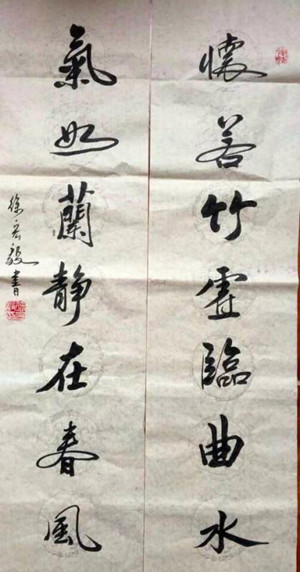 懷若竹虛臨曲水
氣如蘭靜在春風
徐宏毅書